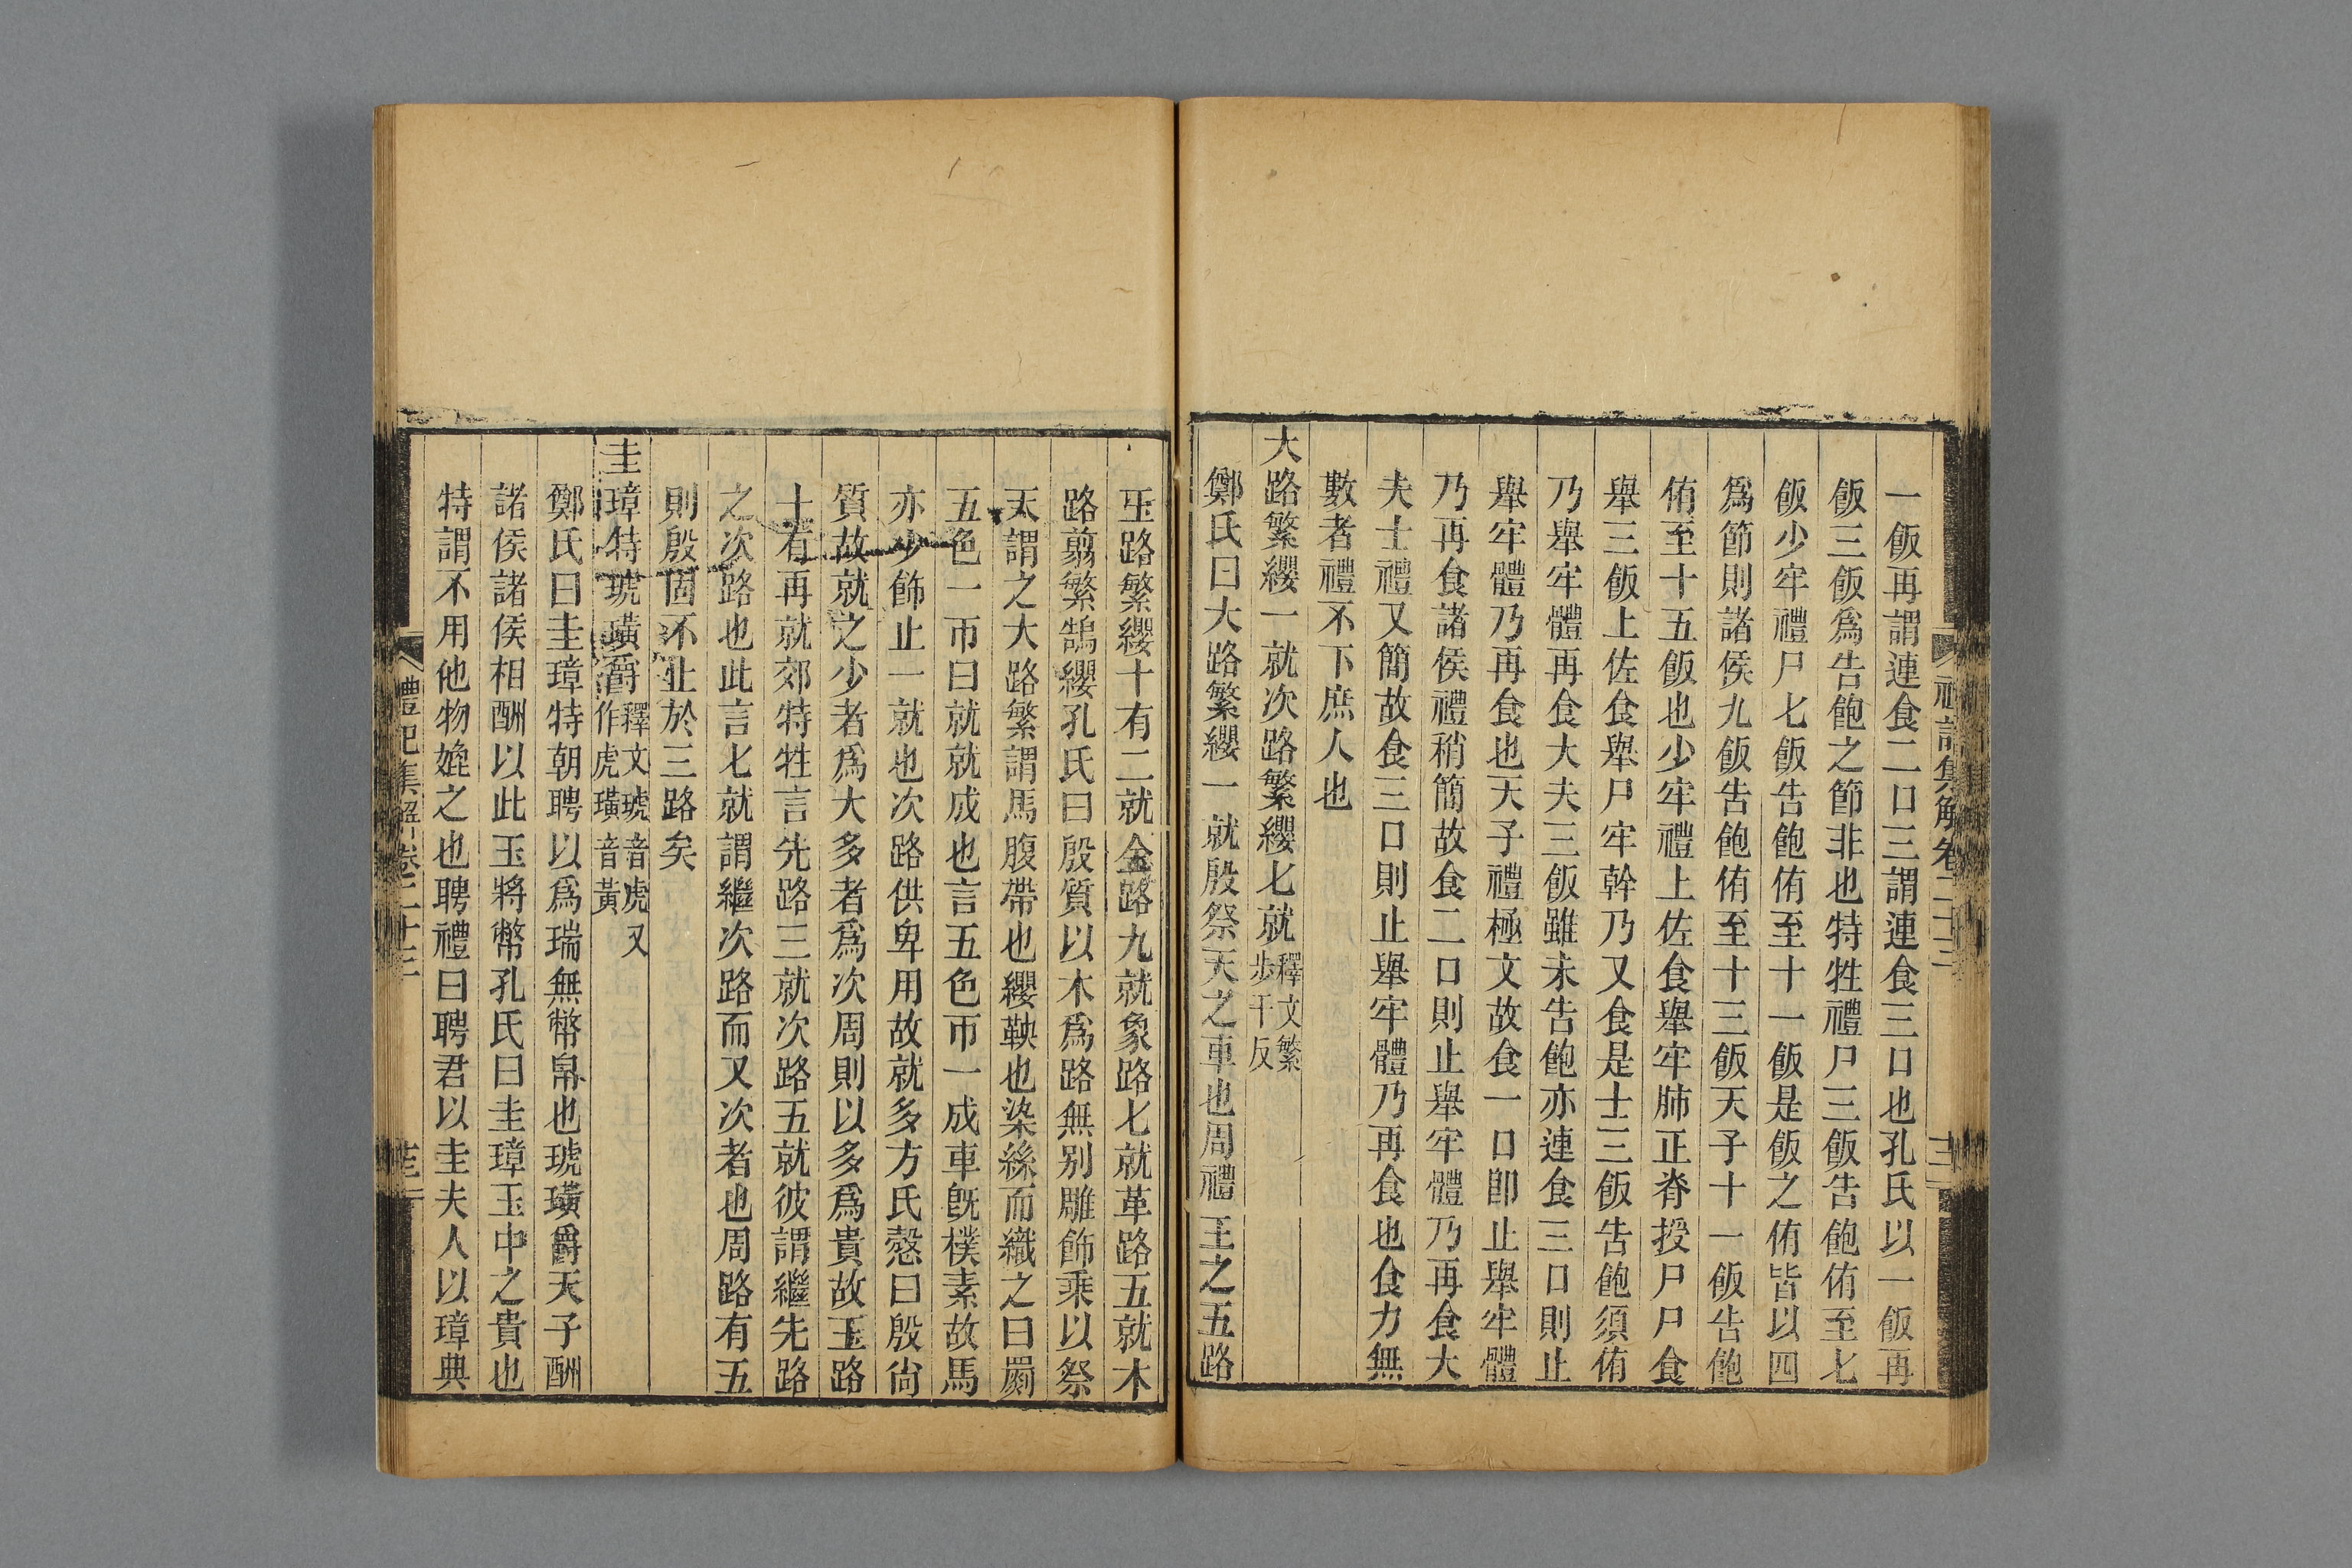 禮記集解卷二十三
一飯再謂連食二口三謂連食三口也孔氏以一飯再
飯三飯爲告飽之節非也特牲禮尸三飯告飽侑至七
飯少牢禮尸七飯告飽侑至十一飯是飯之侑皆以四
爲節則諸侯九飯告飽侑至十三飯天子十一飯告飽
侑至十五飯也少牢禮上佐食舉牢肺正脊授尸尸食
舉三飯上佐食舉尸牢幹乃又食是士三飯告飽須侑
乃舉牢體再食大夫三飯雖未告飽亦連食三口則止
舉牢體乃再食也天子禮極文故食一口卽止舉牢體
乃再食諸侯禮稍簡故食二口則止舉牢體乃再食大
夫士禮又簡故食三口則止舉牢體乃再食也食力無
數者禮不下庶人也
大路繁纓一就次路繁纓七就釋文繁步干反
鄭氏曰大路繁纓一就殷祭天之車也周禮王之五路
玉路繁纓十有二就金路九就象路七就革路五就木
路翦繁鵠纓孔氏曰殷質以木爲路無别雕飾乘以祭
天謂之大路繁謂馬腹帶也纓鞅也染絲而織之曰罽
五色一帀曰就就成也言五色帀一成車旣樸素故馬
亦少飾止一就也次路供卑用故就多方氏慤曰殷尙
質故就之少者爲大多者爲次周則以多爲貴故玉路
十有再就郊特牲言先路三就次路五就彼謂繼先路
之次路也此言七就謂繼次路而又次者也周路有五
則殷固不止於三路矣
圭璋特琥璜爵釋文琥音虎又作虎璜音黃
鄭氏曰圭璋特朝聘以爲瑞無幣帛也琥璜爵天子酬
諸侯諸侯相酬以此玉將幣孔氏曰圭璋玉中之貴也
特謂不用他物媲之也聘禮曰聘君以圭夫人以璋典
禮記集解卷二十三